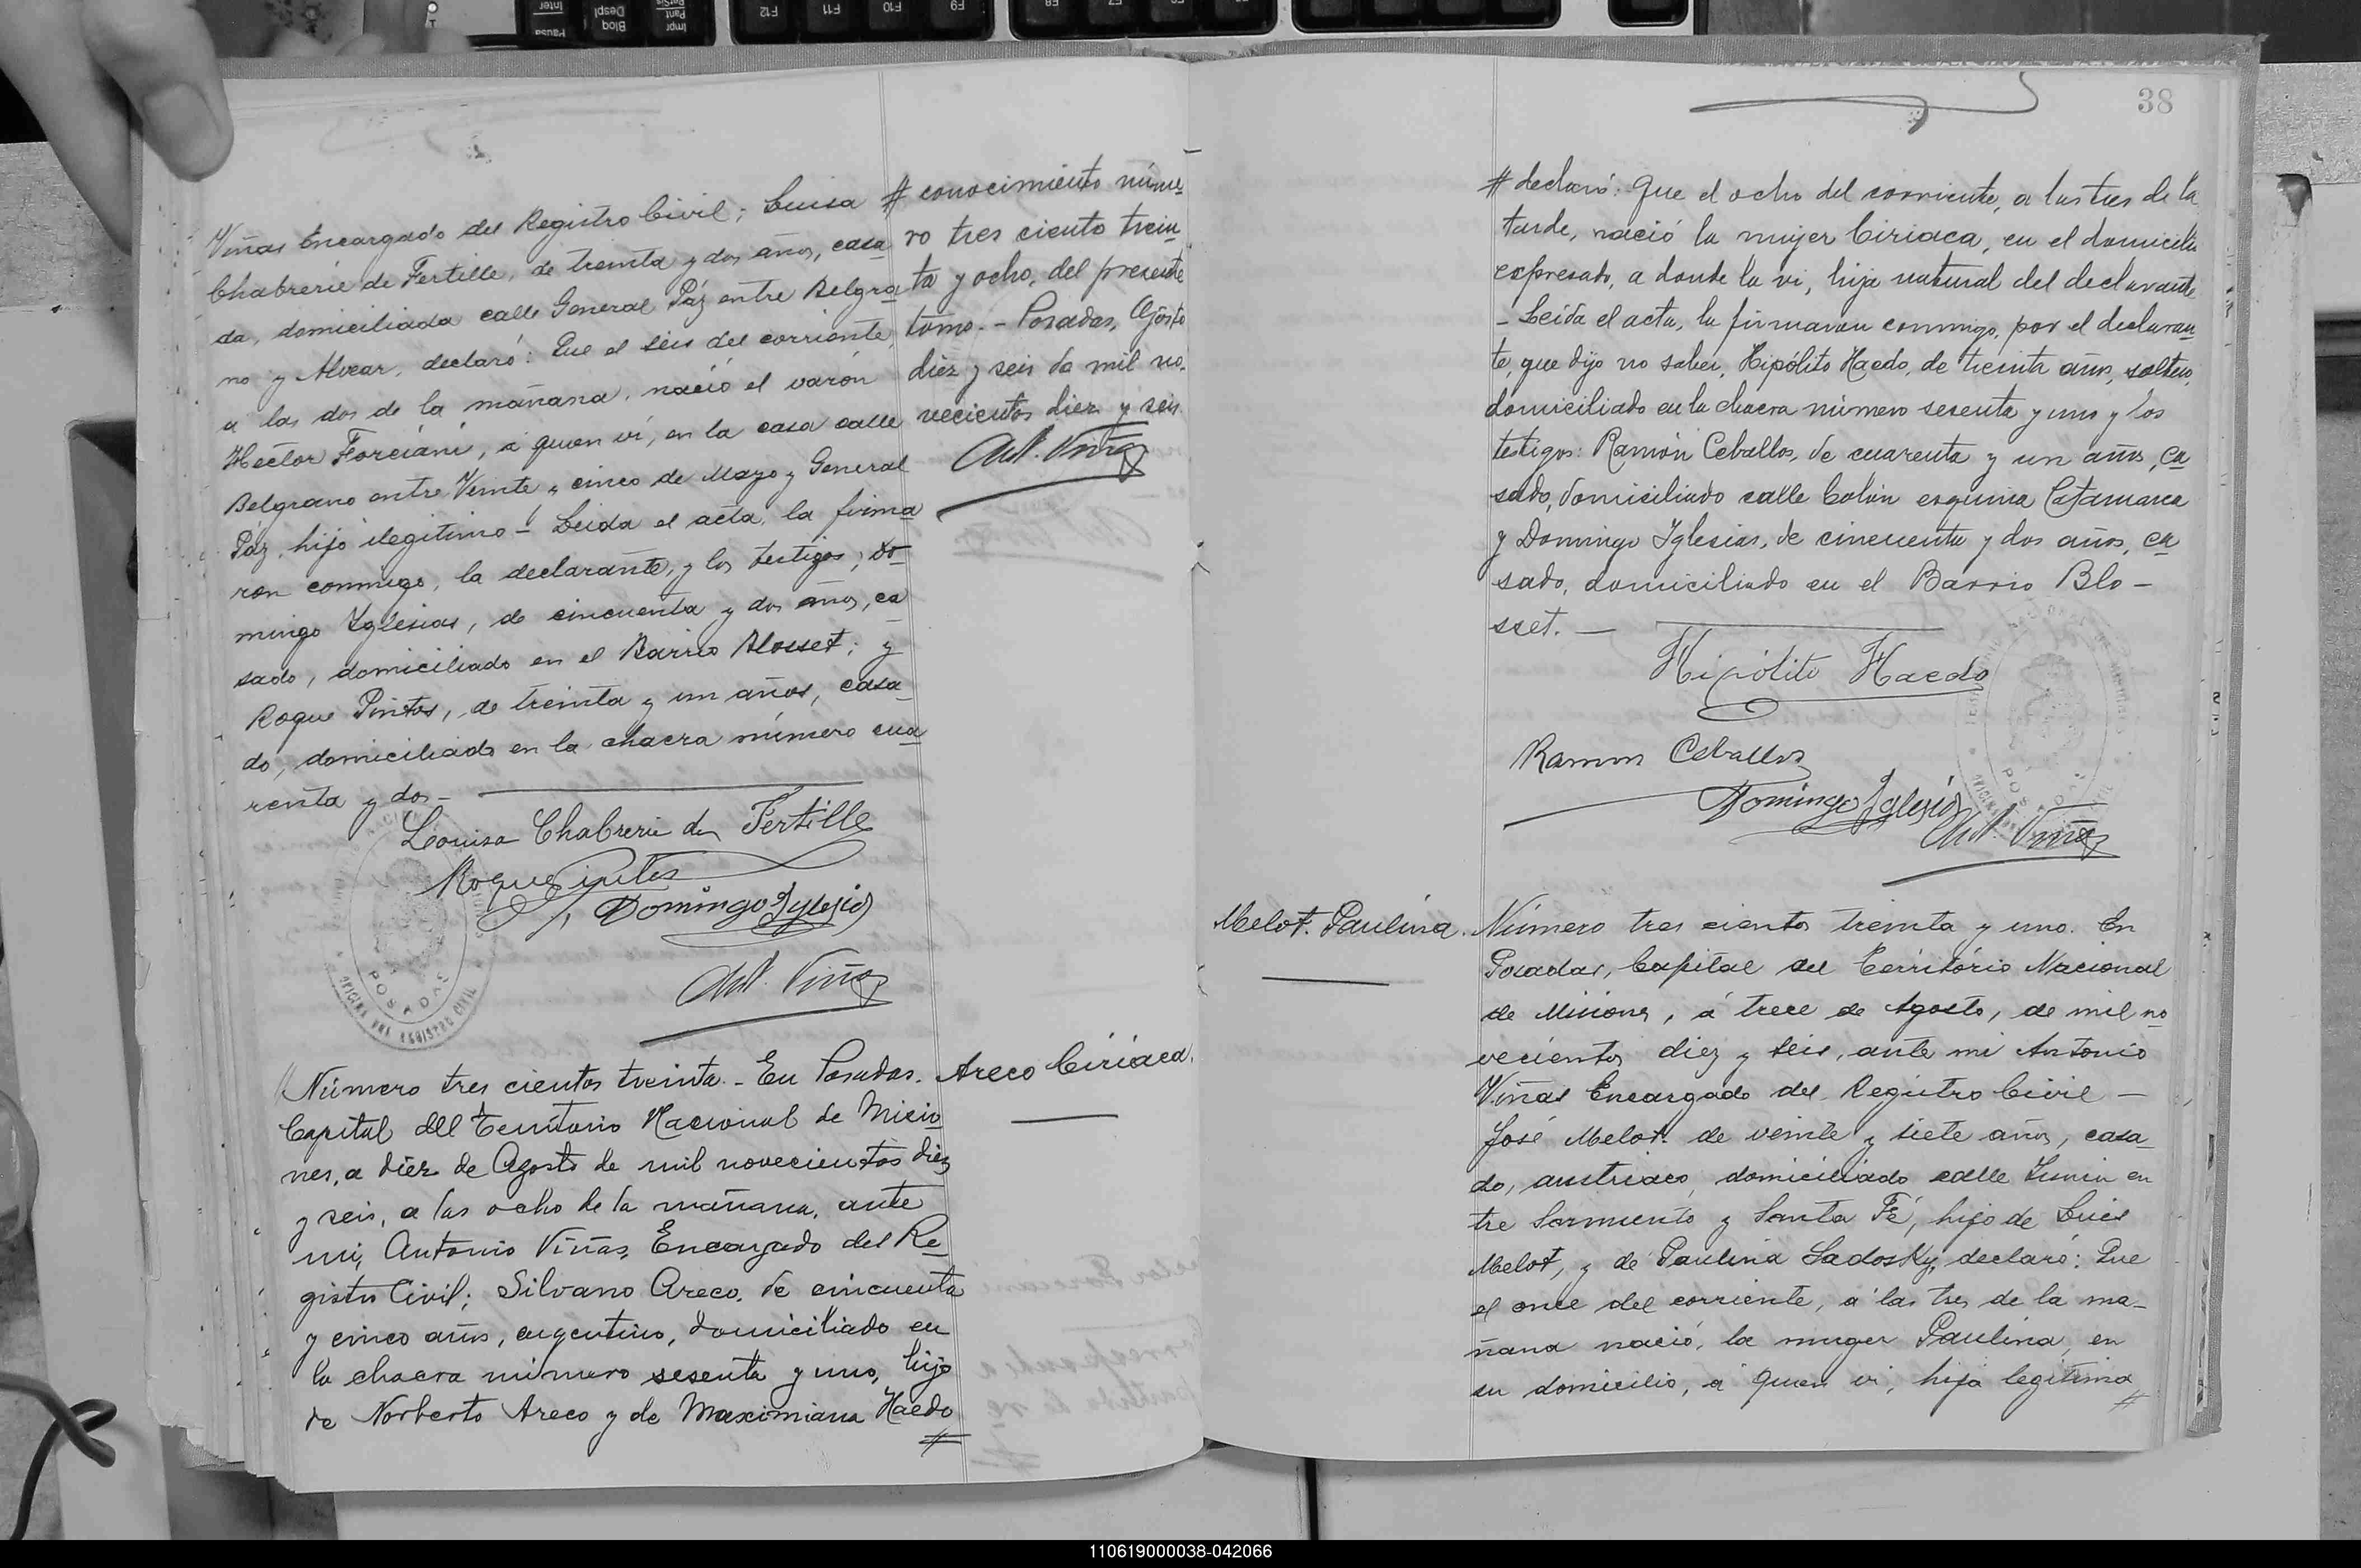 Viñas Encargado del Registro Civil; Luisa
Chabrerie de Fertille, de treinta y dos años, casa
da, domiciliada calle General Páz entre Belgra
no y Alvear, declaró: Que el seis del corriente,
a las dos de la mañana, nació el varón
Hector Forciani, a quien ví, en la casa calle
Belgrano entre Veinte y cinco de Mayo y General
Páz, hijo ilegitimo - Leida el acta, la firma
ron conmigo, la declarante, y los testigos; Do-
mingo Yglesias, de cincuenta y dos años, ca
sado, domiciliado en el Barrio Blosset; y
Roque Pintos, de treinta y un años, casa
do, domiciliado en la chacra número cua
renta y dos -
Louisa Chabrerie de Fertille
Roque Pintos
Domingo Yglesias
Ant. Viñas
# conocimiento núme
ro tres ciento trein
ta y ocho, del presente
tomo. - Posadas, Agosto
diez y seis de mil no-
vecientos diez y seis
Ant. Viñas
Número tres cientos treinta. - En Posadas.
Areco Ciriaca.
Capital del Territorio Nacional de Misio
nes, a diez de Agosto de mil novecientos diez
y seis, a las ocho de la mañana, ante
mi, Antonio Viñas, Encargado del Re
gistro Civil; Silvano Areco, de cincuenta
y cinco años, argentino, domiciliado en
la chacra número sesenta y uno, hijo
de Norberto Areco y de Maximiana Haedo
#
38
# declaró: Que el ocho del corriente, a las tres de la
tarde, nació la mujer Ciriaca, en el domicilio
expresado, a donde la vi, hija natural del declarante
- Leida el acta, la firmaron conmigo, por el declaran
te, que dijo no saber, Hipólito Haedo, de treinta años, soltero,
domiciliado en la chacra número sesenta y uno y los
testigos: Ramón Ceballos, de cuarenta y un años, ca
sado, domiciliado calle Colón esquina Catamarca
y Domingo Yglesias, de cincuenta y dos años, ca
sado, domiciliado en el Barrio Blo -
sset. -
Hipólito Haedo
Ramon Ceballos
Domingo Yglesias
Ant. Viñas
Melot. Paulina.
Número tres cientos treinta y uno. En
Posadas, Capital del Território Nacional
de Misiones, á trece de Agosto, de mil no
vecientos diez y seis, ante mi Antonio
Viñas Encargado del Registro Civil -
José Melot. de veinte y siete años, casa
do, austriaco, domiciliado calle Junin en
tre Sarmiento y Santa Fé, hijo de Luis
Melot, y de Paulina Sadosky, declaró: Que
el once del corriente, a las tres de la ma-
ñana nació, la muger Paulina, en
su domicilio, a quien vi, hija legitima
#
POSADAS
OFICINA DEL REGISTRO CIVIL
110619000038-042066